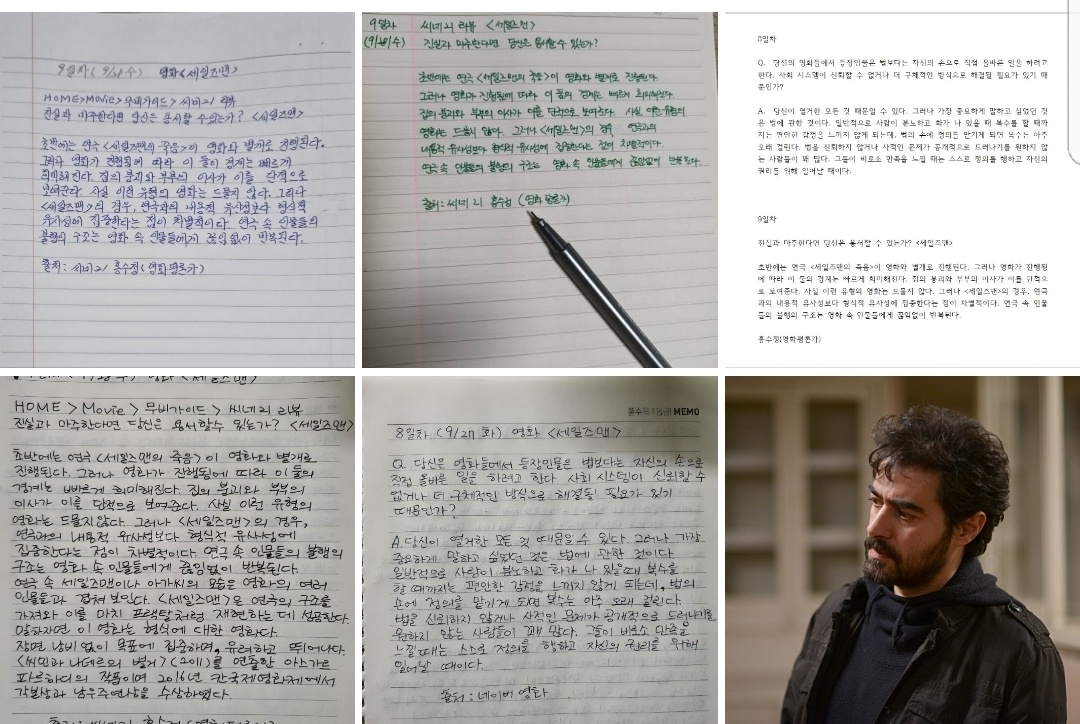 9일차 (9/28 수) 영화 <세일즈맨>
HOME > MOVIE > 무비가이드 > 씨네21 리뷰
진실과 마주한다면 당신은 용서할 수 있는가? <세일즈맨>
초반에는 연극 <세일즈맨의 죽음>이 영화와 별개로 진행된다.
그러나 영화가 진행됨에 따라 이 둘의 경계는 빠르게
희미해진다. 집의 붕괴와 부부의 이사가 이를 단적으로
보여준다. 사실 이런 유형의 영화는 드물지 않다. 그러나
<세일즈맨>의 경우, 연극과의 내용적 유사성보다 형식적
유사성에 집중한다는 점이 차별적이다. 연극 속 인물들의
불행의 구조는 영화 속 인물들에게 끊임없이 반복된다.
출처 : 씨네21 홍수정 (영화평론가)
9일차 씨네21 리뷰 <세일즈맨>
(9/28/수) 진실과 마주한다면 당신은 용서할 수 있는가?
초반에는 연극 <세일즈맨의 죽음>이 영화와 별개로 진행된다.
그러나 영화가 진행됨에 따라 이 둘의 경계는 빠르게 희미해진다.
집의 붕괴와 부부의 이사가 이를 단적으로 보여준다. 사실 이런 유형의
영화는 드물지 않다. 그러나 <세일즈맨>의 경우, 연극과의
내용적 유사성보다 형식적 유사성에 집중한다는 점이 차별적이다.
연극 속 인물들의 불행의 구조는 영화 속 인물들에게 끊임없이 반복된다.
출처 : 씨네21 홍수정 (영화평론가)
8일차
Q. 당신의 영화들에서 등장인물은 법보다는 자신의 손으로 직접 올바른 일을 하려고
한다. 사회 시스템이 신뢰할 수 없거나 더 구체적인 방식으로 해결될 필요가 있기 때
문인가?
A. 당신이 열거한 모든 것 때문일 수 있다. 그러나 가장 중요하게 말하고 싶었던 것
은 법에 관한 것이다. 일반적으로 사람이 분노하고 화가 나 있을 때 복수를 할 때까
지는 편안한 감정을 느끼지 않게 되는데, 법의 손에 정의를 맡기게 되면 복수는 아주
오래 걸린다. 법을 신뢰하지 않거나 사적인 문제가 공개적으로 드러나기를 원하지 않
는 사람들이 꽤 많다. 그들이 비로소 만족을 느낄 때는 스스로 정의를 행하고 자신의
권리를 위해 일어날 때이다.
9일차
진실과 마주한다면 당신은 용서할 수 있는가? <세일즈맨>
초반에는 연극 <세일즈맨의 죽음>이 영화와 별개로 진행된다. 그러나 영화가 진행됨
에 따라 이 둘의 경계는 빠르게 희미해진다. 집의 붕괴와 부부의 이사가 이를 단적으
로 보여준다. 사실 이런 유형의 영화는 드물지 않다. 그러나 <세일즈맨>의 경우, 연극
과의 내용적 유사성보다 형식적 유사성에 집중한다는 점이 차별적이다. 연극 속 인물
들의 불행의 구조는 영화 속 인물들에게 끊임없이 반복된다.
홍수정(영화평론가)
HOME > Movie > 무비가이드 > 씨네21 리뷰
진실과 마주한다면 당신은 용서할수 있는가? <세일즈맨>
초반에는 연극 <세일즈맨의 죽음>이 영화와 별개로
진행된다. 그러나 영화가 진행됨에 따라 이 둘의
경계는 빠르게 희미해진다. 집의 붕괴와 부부의
이사가 이를 단적으로 보여준다. 사실 이런 유형의
영화는 드물지않다. 그러나 <세일즈맨>의 경우,
연극과의 내용적 유사성보다 형식적 유사성에
집중한다는 점이 차별적이다. 연극 속 인물들의 불행의
구조는 영화 속 인물들에게 끊임없이 반복된다.
연극 속 세일즈맨이나 아가씨의 모습은 영화의 여러
인물들과 겹쳐 보인다. <세일즈맨>은 연극의 구조를
가져와 이를 마치 프랙탈처럼 재현하는 데 성공한다.
말하자면 이 영화는 형식에 대한 영화다.
장면 낭비 없이 목표에 집중하며, 유려하고 뛰어나다.
<씨민과 나데르의 별거>(2011)를 연출한 아스가르
파르하디의 작품이며 2016년 칸국제영화제에서
각본상과 남우주연상을 수상하였다.
MEMO
8일차 (9/27 화) 영화 <세일즈맨>
Q. 당신은 영화들에서 등장인물은 법보다는 자신의 손으로
직접 올바른 일을 하려고 한다. 사회 시스템이 신뢰할 수
없거나 더 구체적인 방식으로 해결될 필요가 있기
때문인가?
A. 당신이 열거한 모든 것 때문일 수 있다. 그러나 가장
중요하게 말하고 싶었던 것은 법에 관한 것이다.
일반적으로 사람이 분노하고 화가 나 있을 때 복수를
할 때까지는 편안한 감정을 느끼지 않게 되는데, 법의
손에 정의를 맡기게 되면 복수는 아주 오래 걸린다.
법을 신뢰하지 않거나 사적인 문제가 공개적으로 드러나기를
원하지 않는 사람들이 꽤 많다. 그들이 비로소 만족을
느낄 때는 스스로 정의를 행하고 자신의 권리를 위해
일어날 때이다.
출처 : 네이버 영화